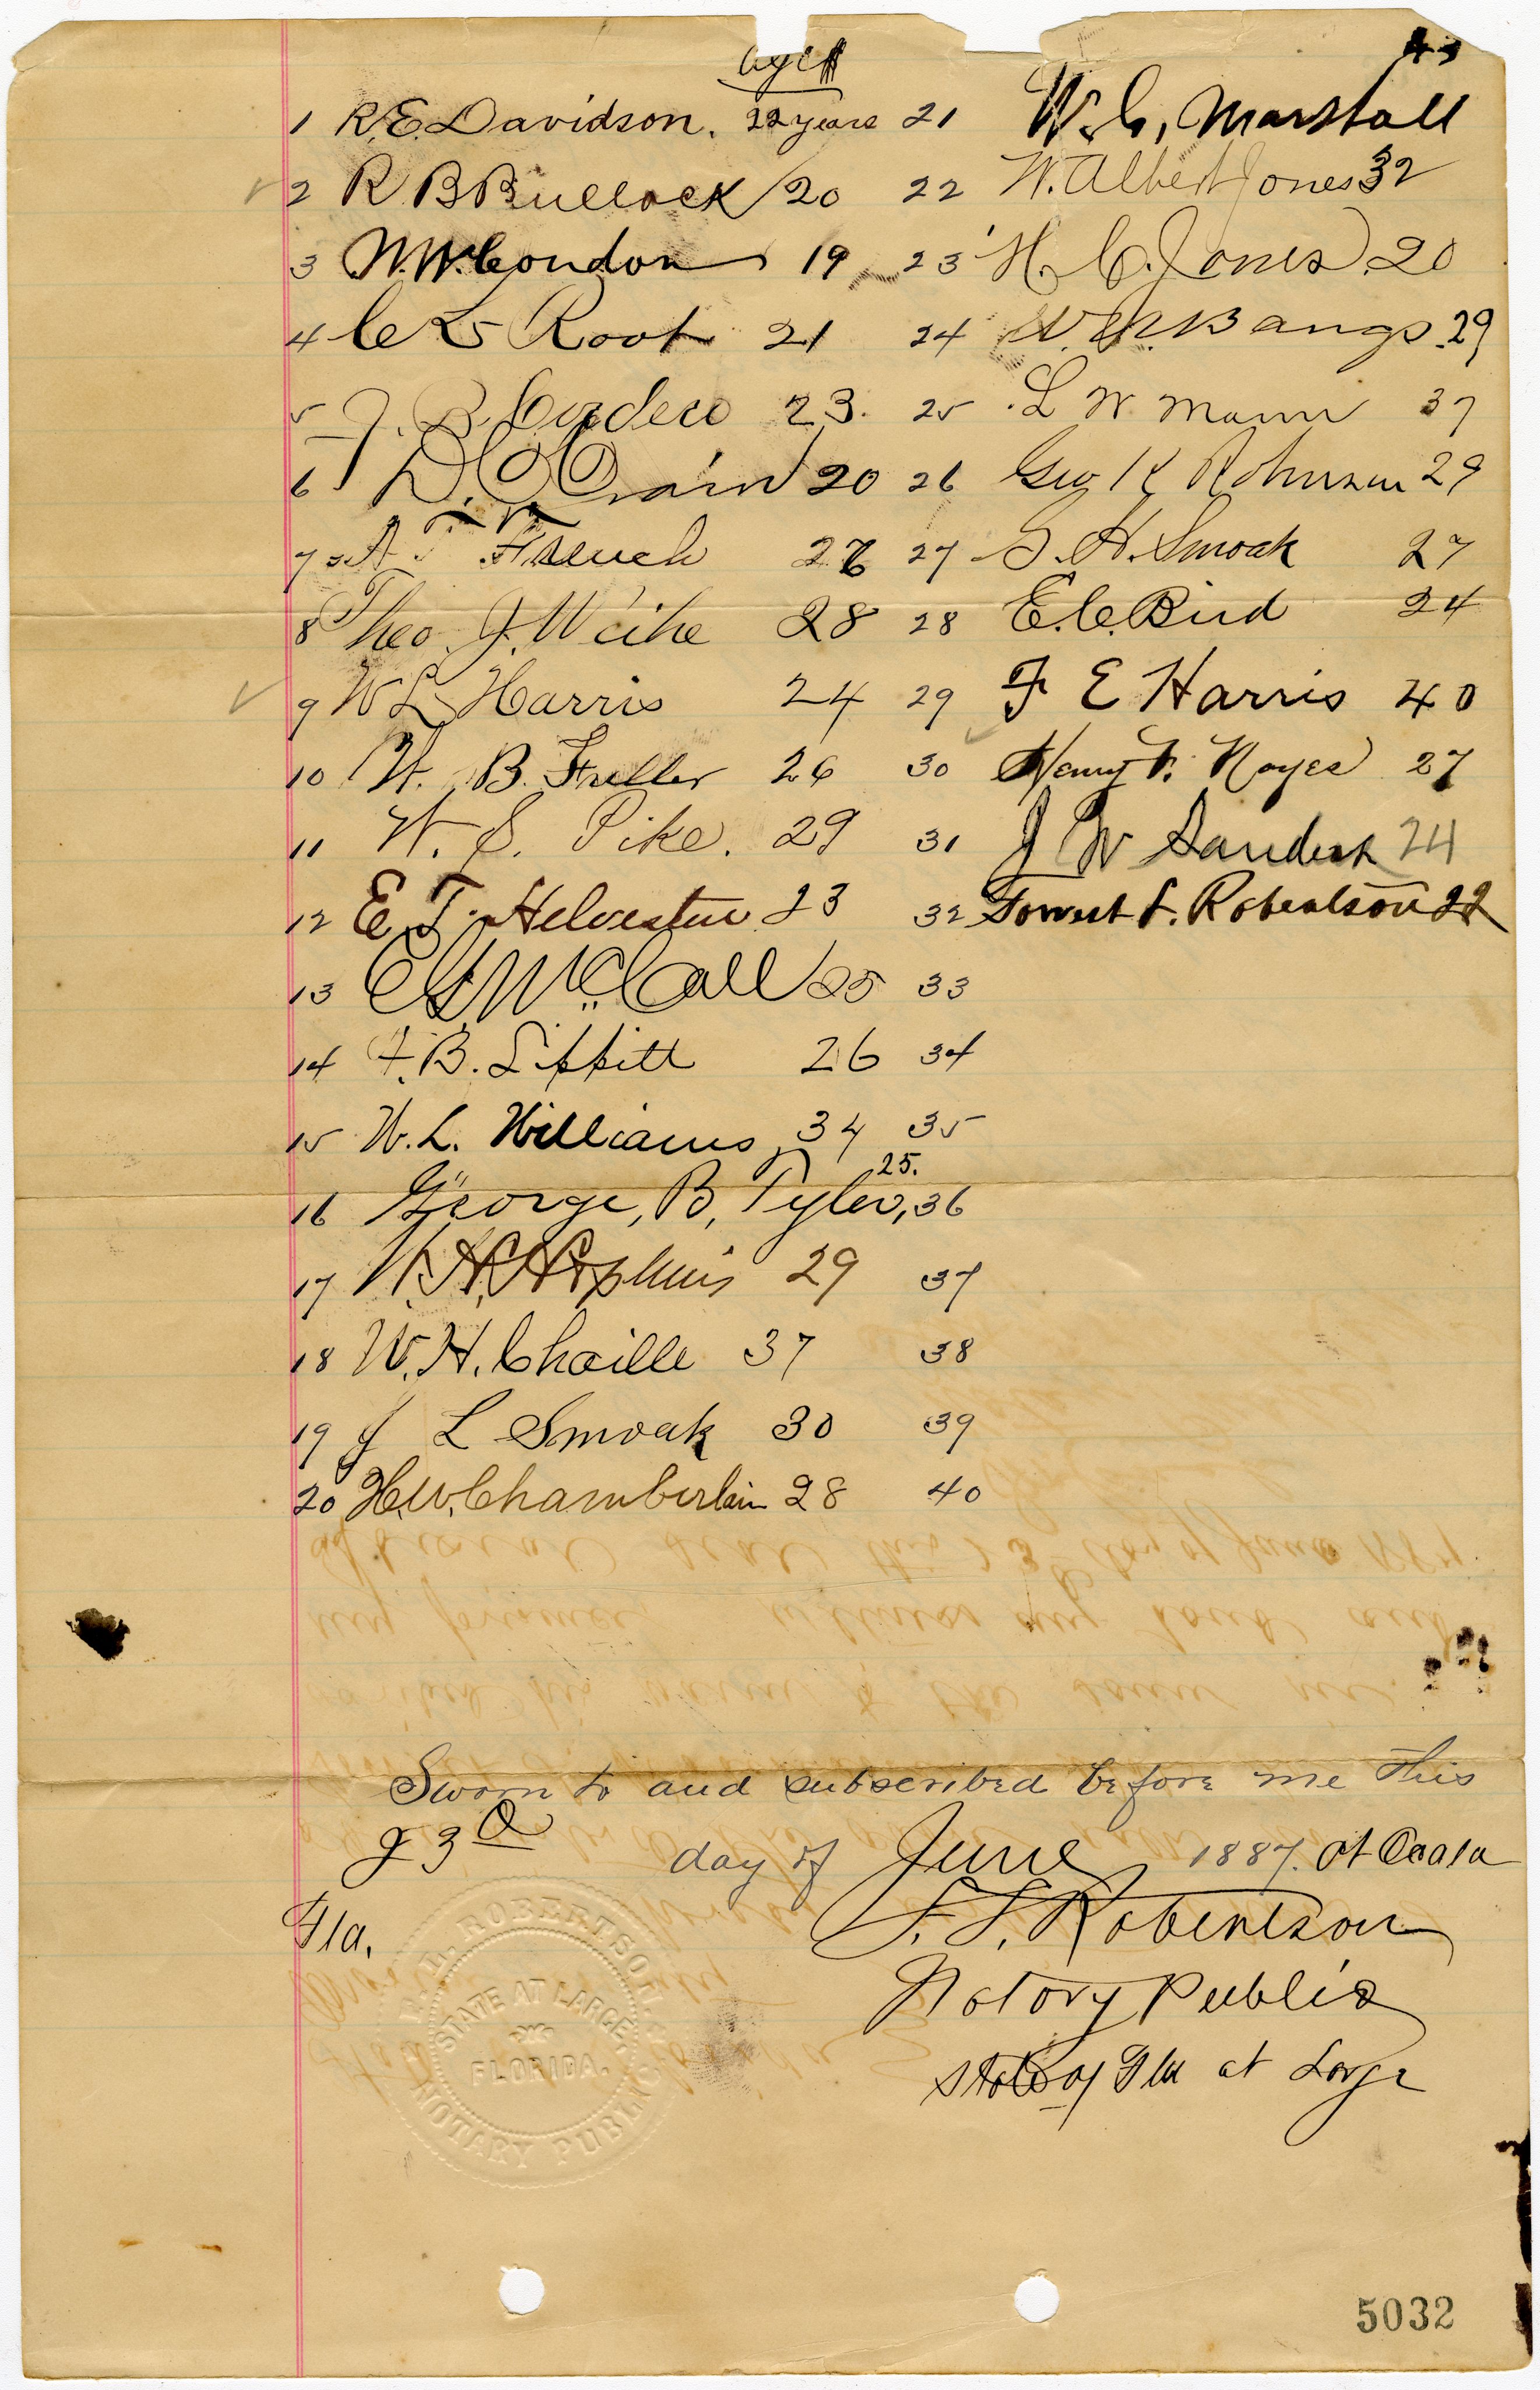 Age
43
1 R.E. Davidson. 22 years 21 W. C. Marshall
2 R B Bullock 20 22 W. Albert Jones 32
3 W.W. Condon 19 23 H. C. Jones. 20
4 C L Root 21 24 Bangs. 29
5 J. B. 23. 25 L W Mann 37
6 D. C. Crain 20 26 Geo K Robinson 29
7 A T French 26 27 G. H. Smoak 27
8 Theo. J. Weihe 28 28 E. C. Bird 24
9 W L Harris 24 29 F E Harris 40
10 W. B. Fuller 26 30 Henry F. Noyes 27
11 W. S. Pike. 29 31 J W Sanders 24
12 E. T. Helvenston 23 32 Forrest F. Robertson 22
13 E G McCall 25 33
14 F. B. Lippitt 26 34
15 W. L. Williams, 34 35
25.
16 George, B, Tyler, 36
17 Hopkins 29 37
18 W. H. Chaille 37 38
19 J L Smoak 30 39
20 H.W. Chamberlain 28 40
Sworn to and subscribed before me this
23d day of June 1887. at Ocala
Fla.
F. F. Robertson
Notary Public
State of Fla at Large
ROBERTSON
STATE AT LARGE
FLORIDA.
NOTARY PUBLIC
5032